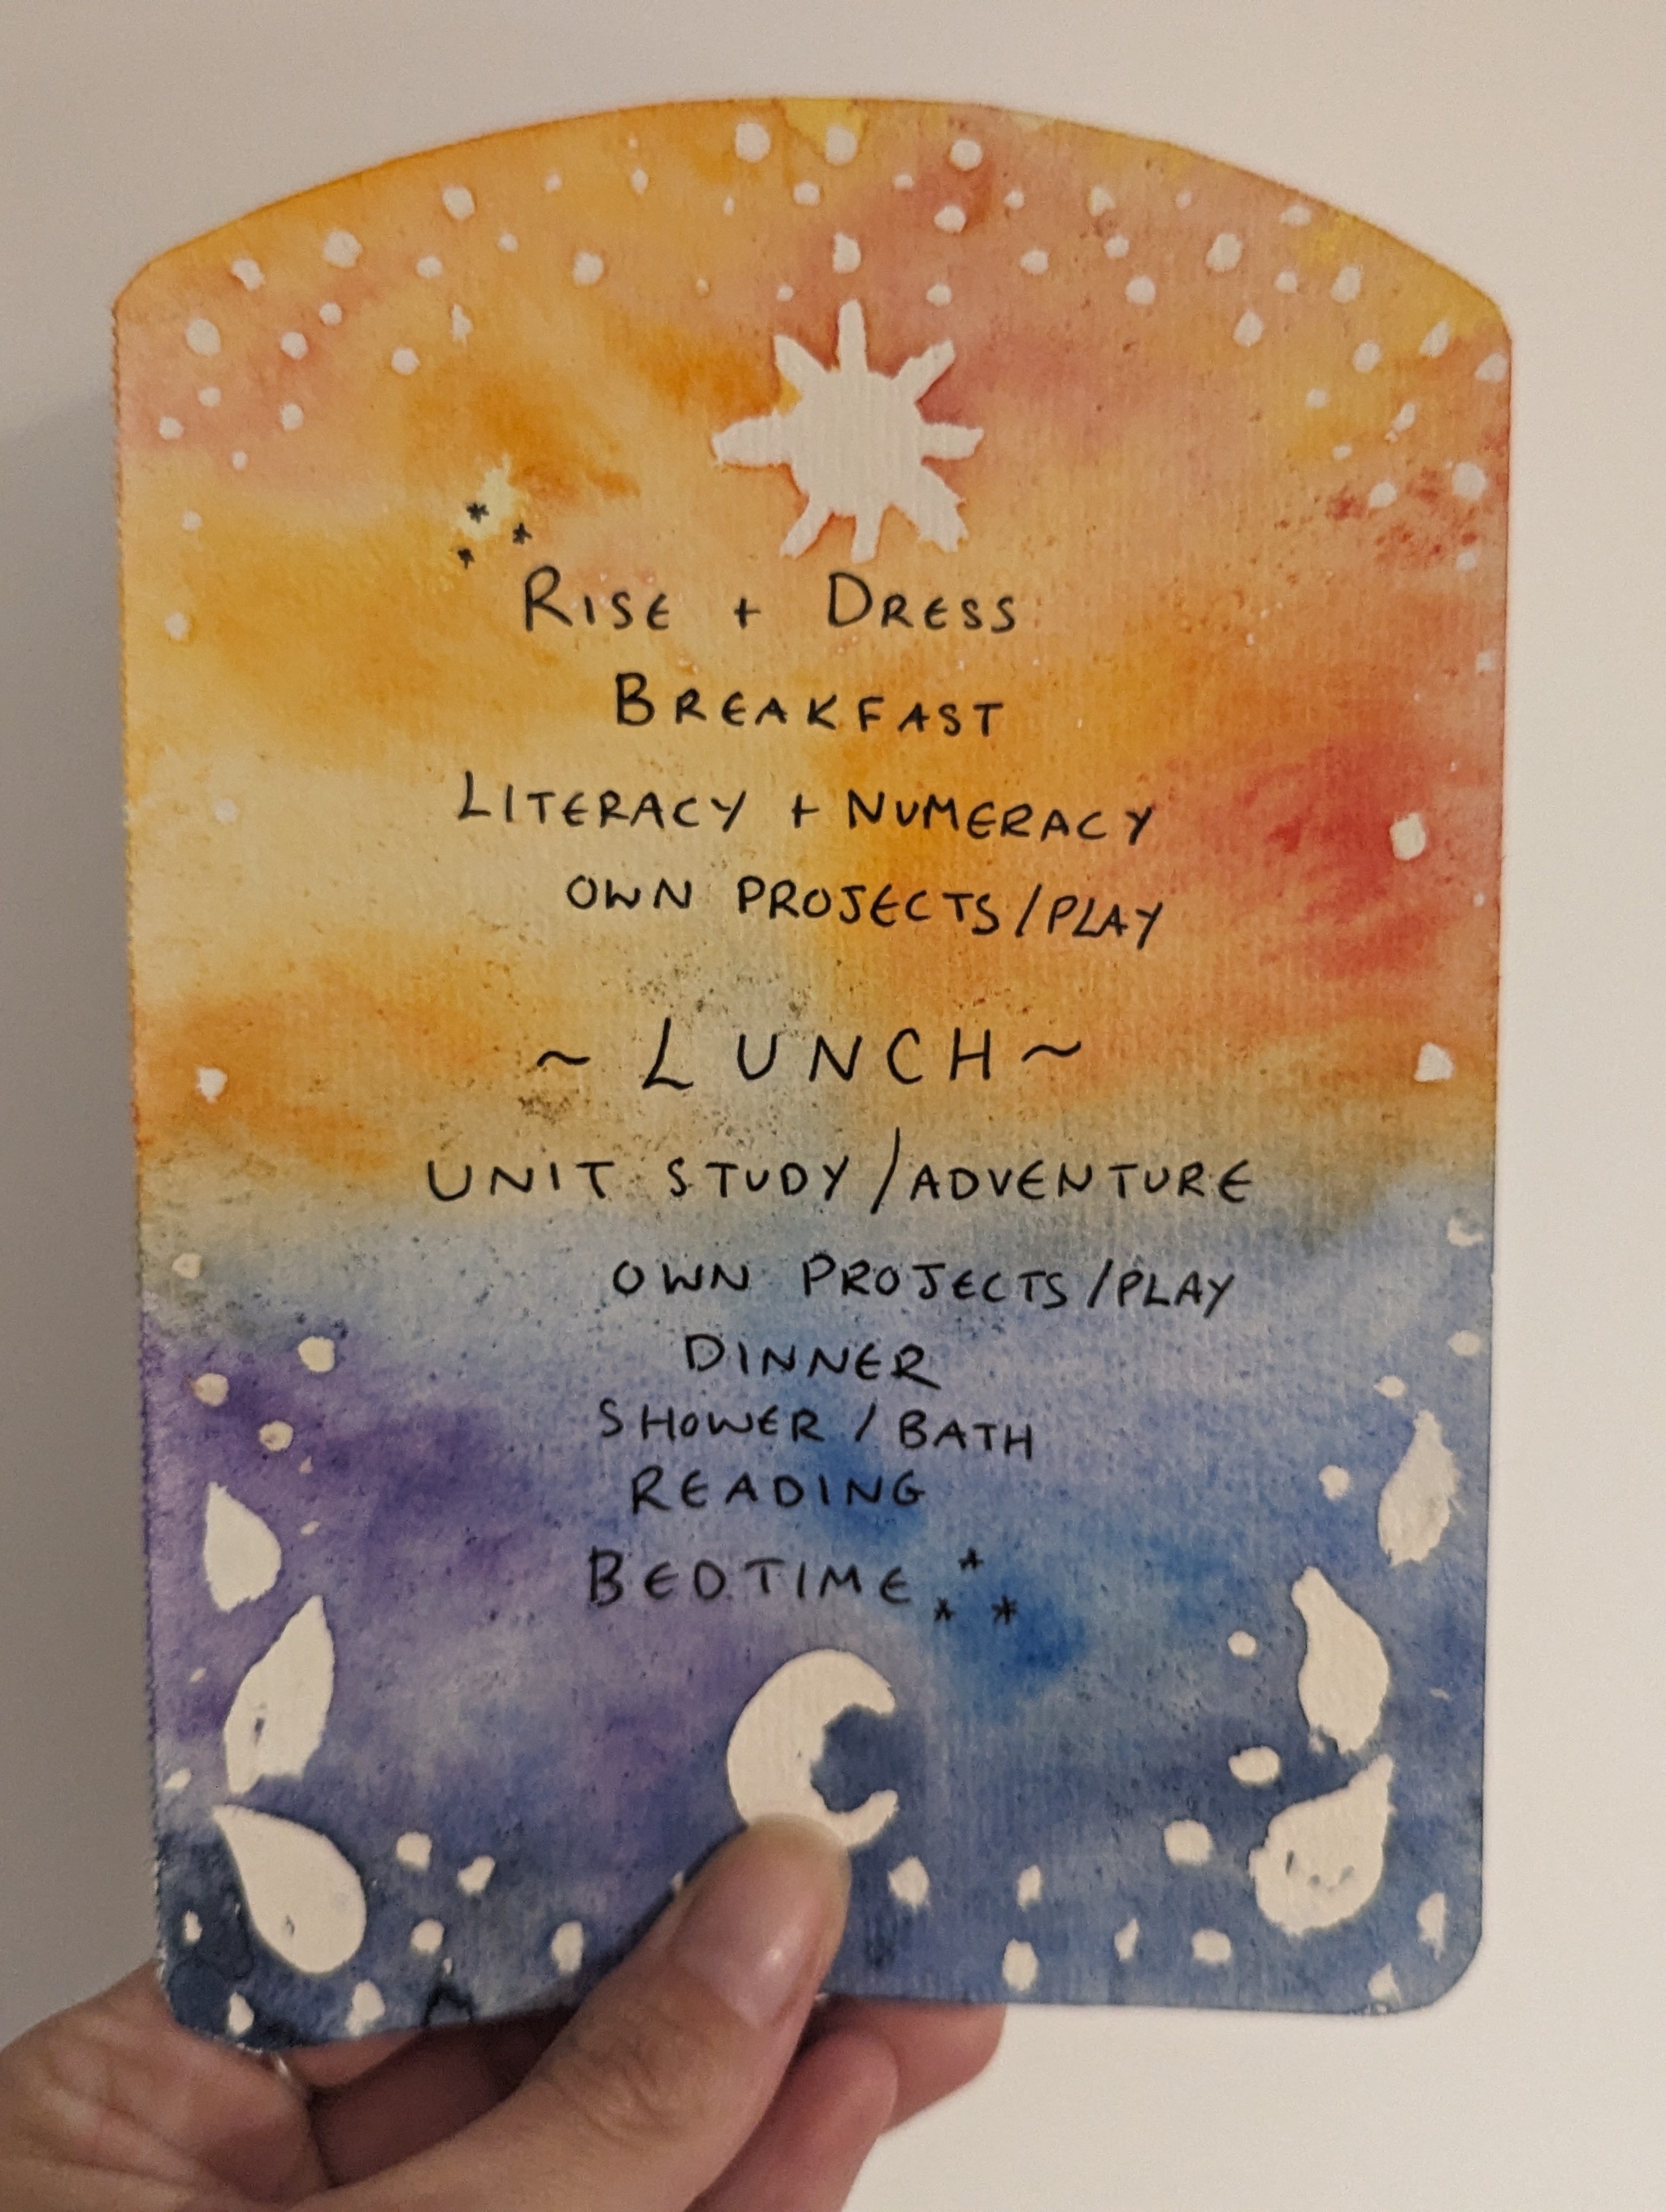 RISE + DRESS
BREAKFAST
LITERACY + NUMERACY
OWN PROJECTS/PLAY
~ LUNCH ~
UNIT STUDY/ADVENTURE
OWN PROJECTS/PLAY
DINNER
SHOWER / BATH
READING
BEDTIME